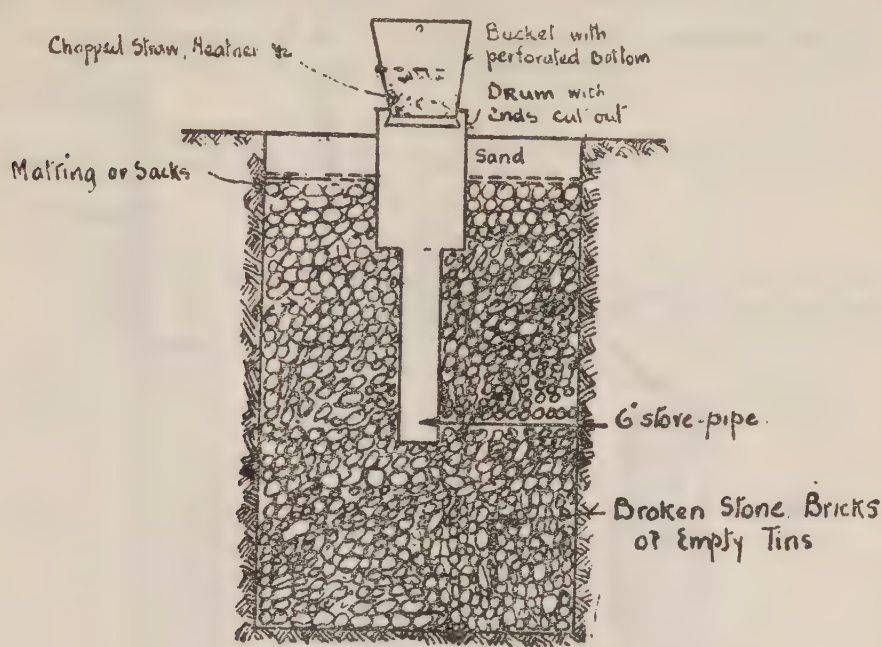 Chopped Straw, Heather &c
Bucket with
perforated Bottom
Drum with
Ends cut out
Sand
Matting or Sacks
6" stove-pipe.
Broken Stone. Bricks
or Empty Tins